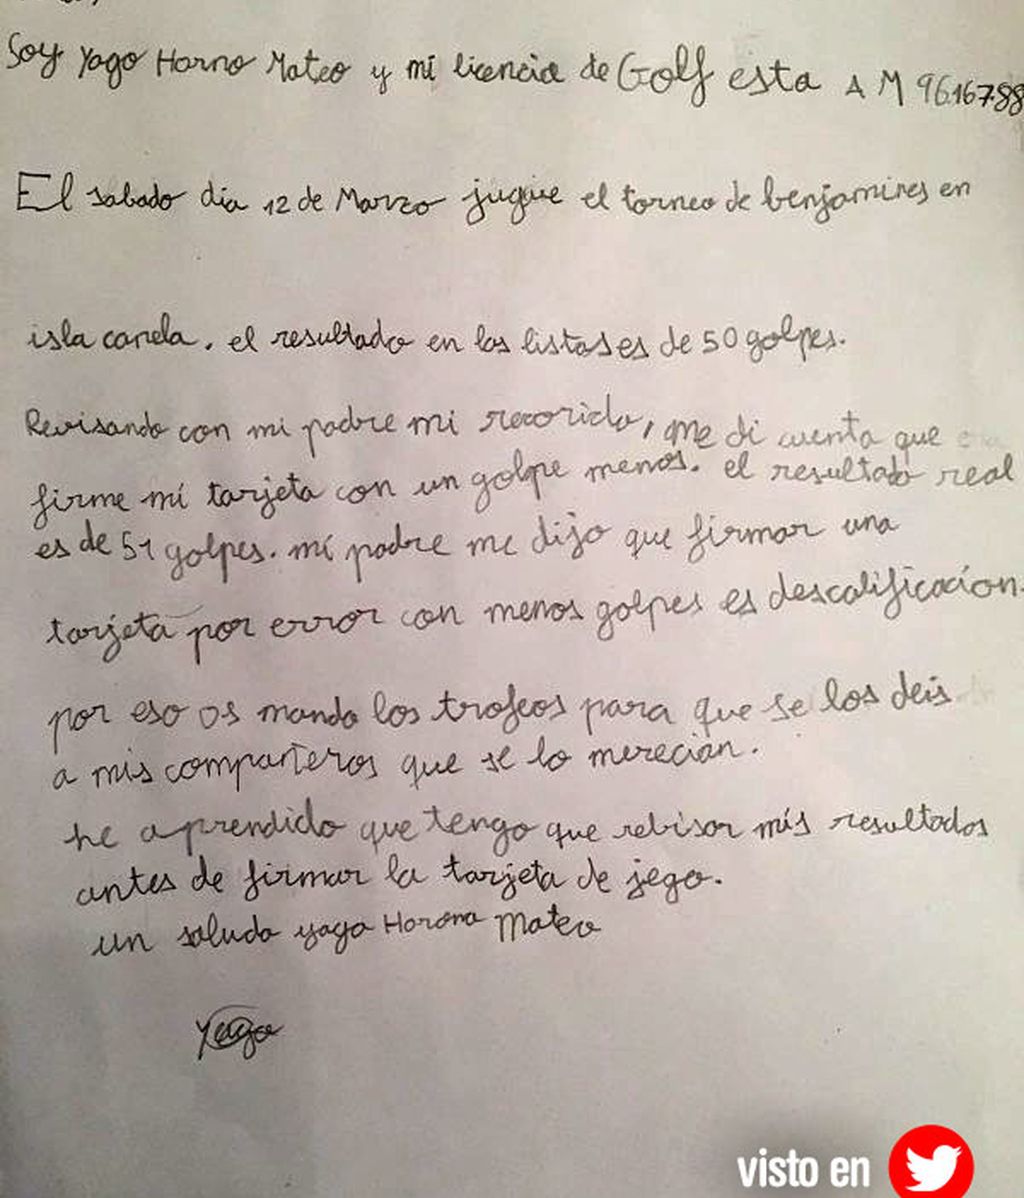 Soy Yago Horno Mateo y mi licencia de Golf esta AM 96.167.88
El sabado dia 12 de Marzo jugue el torneo de benjamines en
isla canela. el resultado en las listas es de 50 golpes.
Revisando con mi padre mi recorido, me di cuenta que
firme mi tarjeta con un golpe menos. el resultado real
es de 51 golpes. mi padre me dijo que firmar una
tarjeta por error con menos golpes es descalificacion.
por eso os mando los trofeos para que se los deis
a mis compañeros que se lo merecian.
he aprendido que tengo que rebisar mis resultados
antes de firmar la tarjeta de jego.
un saludo yago Horono Mateo
Yago
visto en